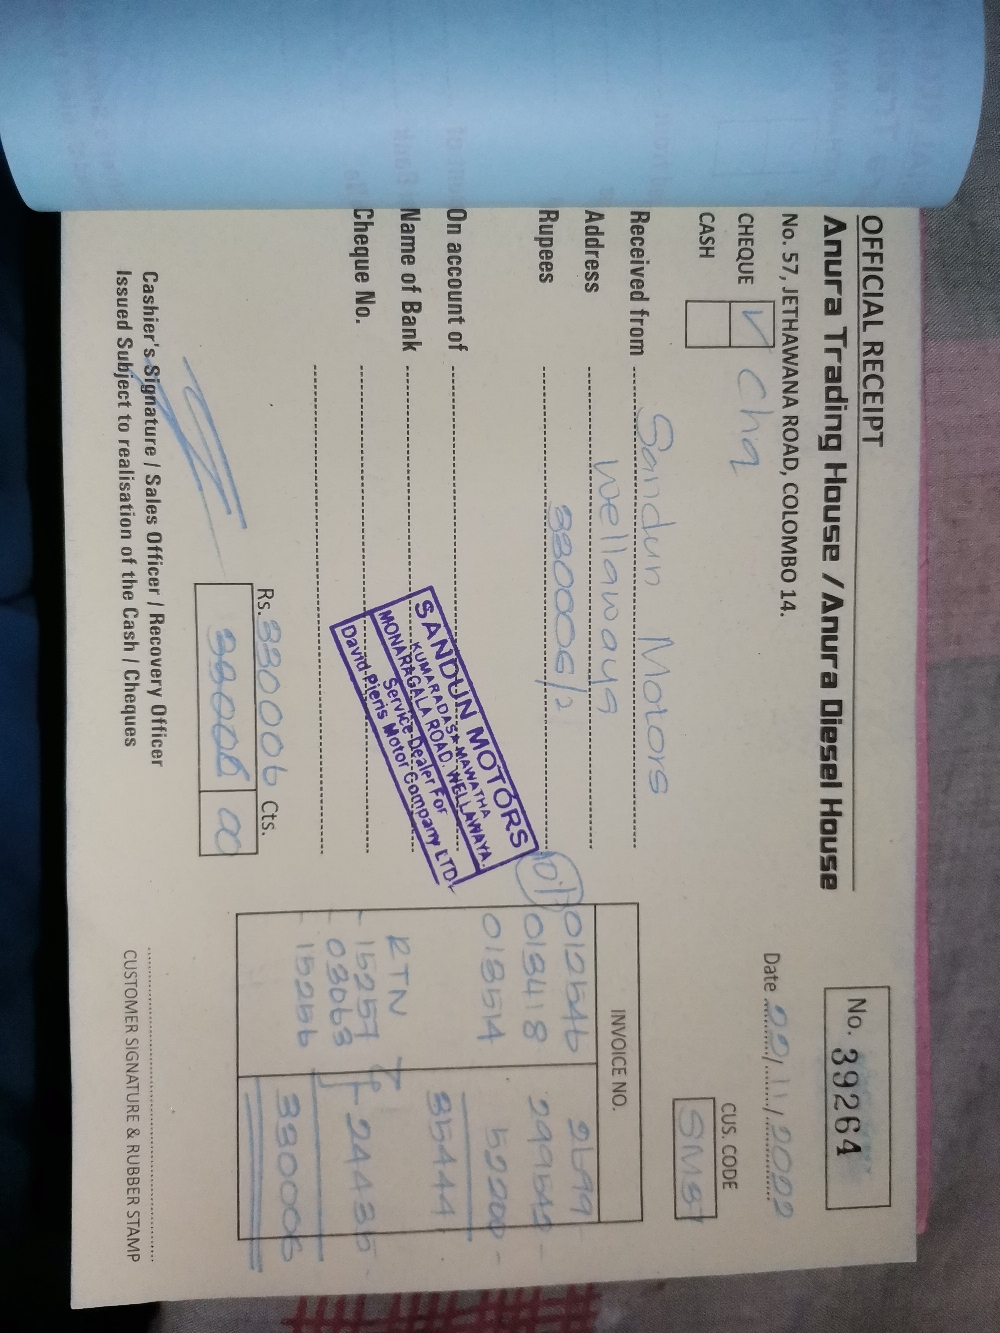 OFFICIAL RECEIPT
Anura Trading House / Anura Diesel House
No. 57, JETHAWANA ROAD, COLOMBO 14.
No. 39264
Date 09/11/2022
CHEQUE ✓ Chq
CASH
CUS. CODE
Received from Sandun Motors
Address Wellawaya
Rupees 330006/=
On account of
Name of Bank
Cheque No.
SANDUN MOTORS
KUMARADASA MAWATHA
MONARAGALA ROAD, WELLAWAYA.
Service Dealer For
David Pieris Motor Company LTD.
INVOICE NO.
012546 2699
013418 299542 -
013514 52200 -
354441
RTN
- 15257
03063 24435 -
- 15256
330006
Rs. 330006 Cts.
330006 00
Cashier's Signature / Sales Officer / Recovery Officer
Issued Subject to realisation of the Cash / Cheques
CUSTOMER SIGNATURE & RUBBER STAMP